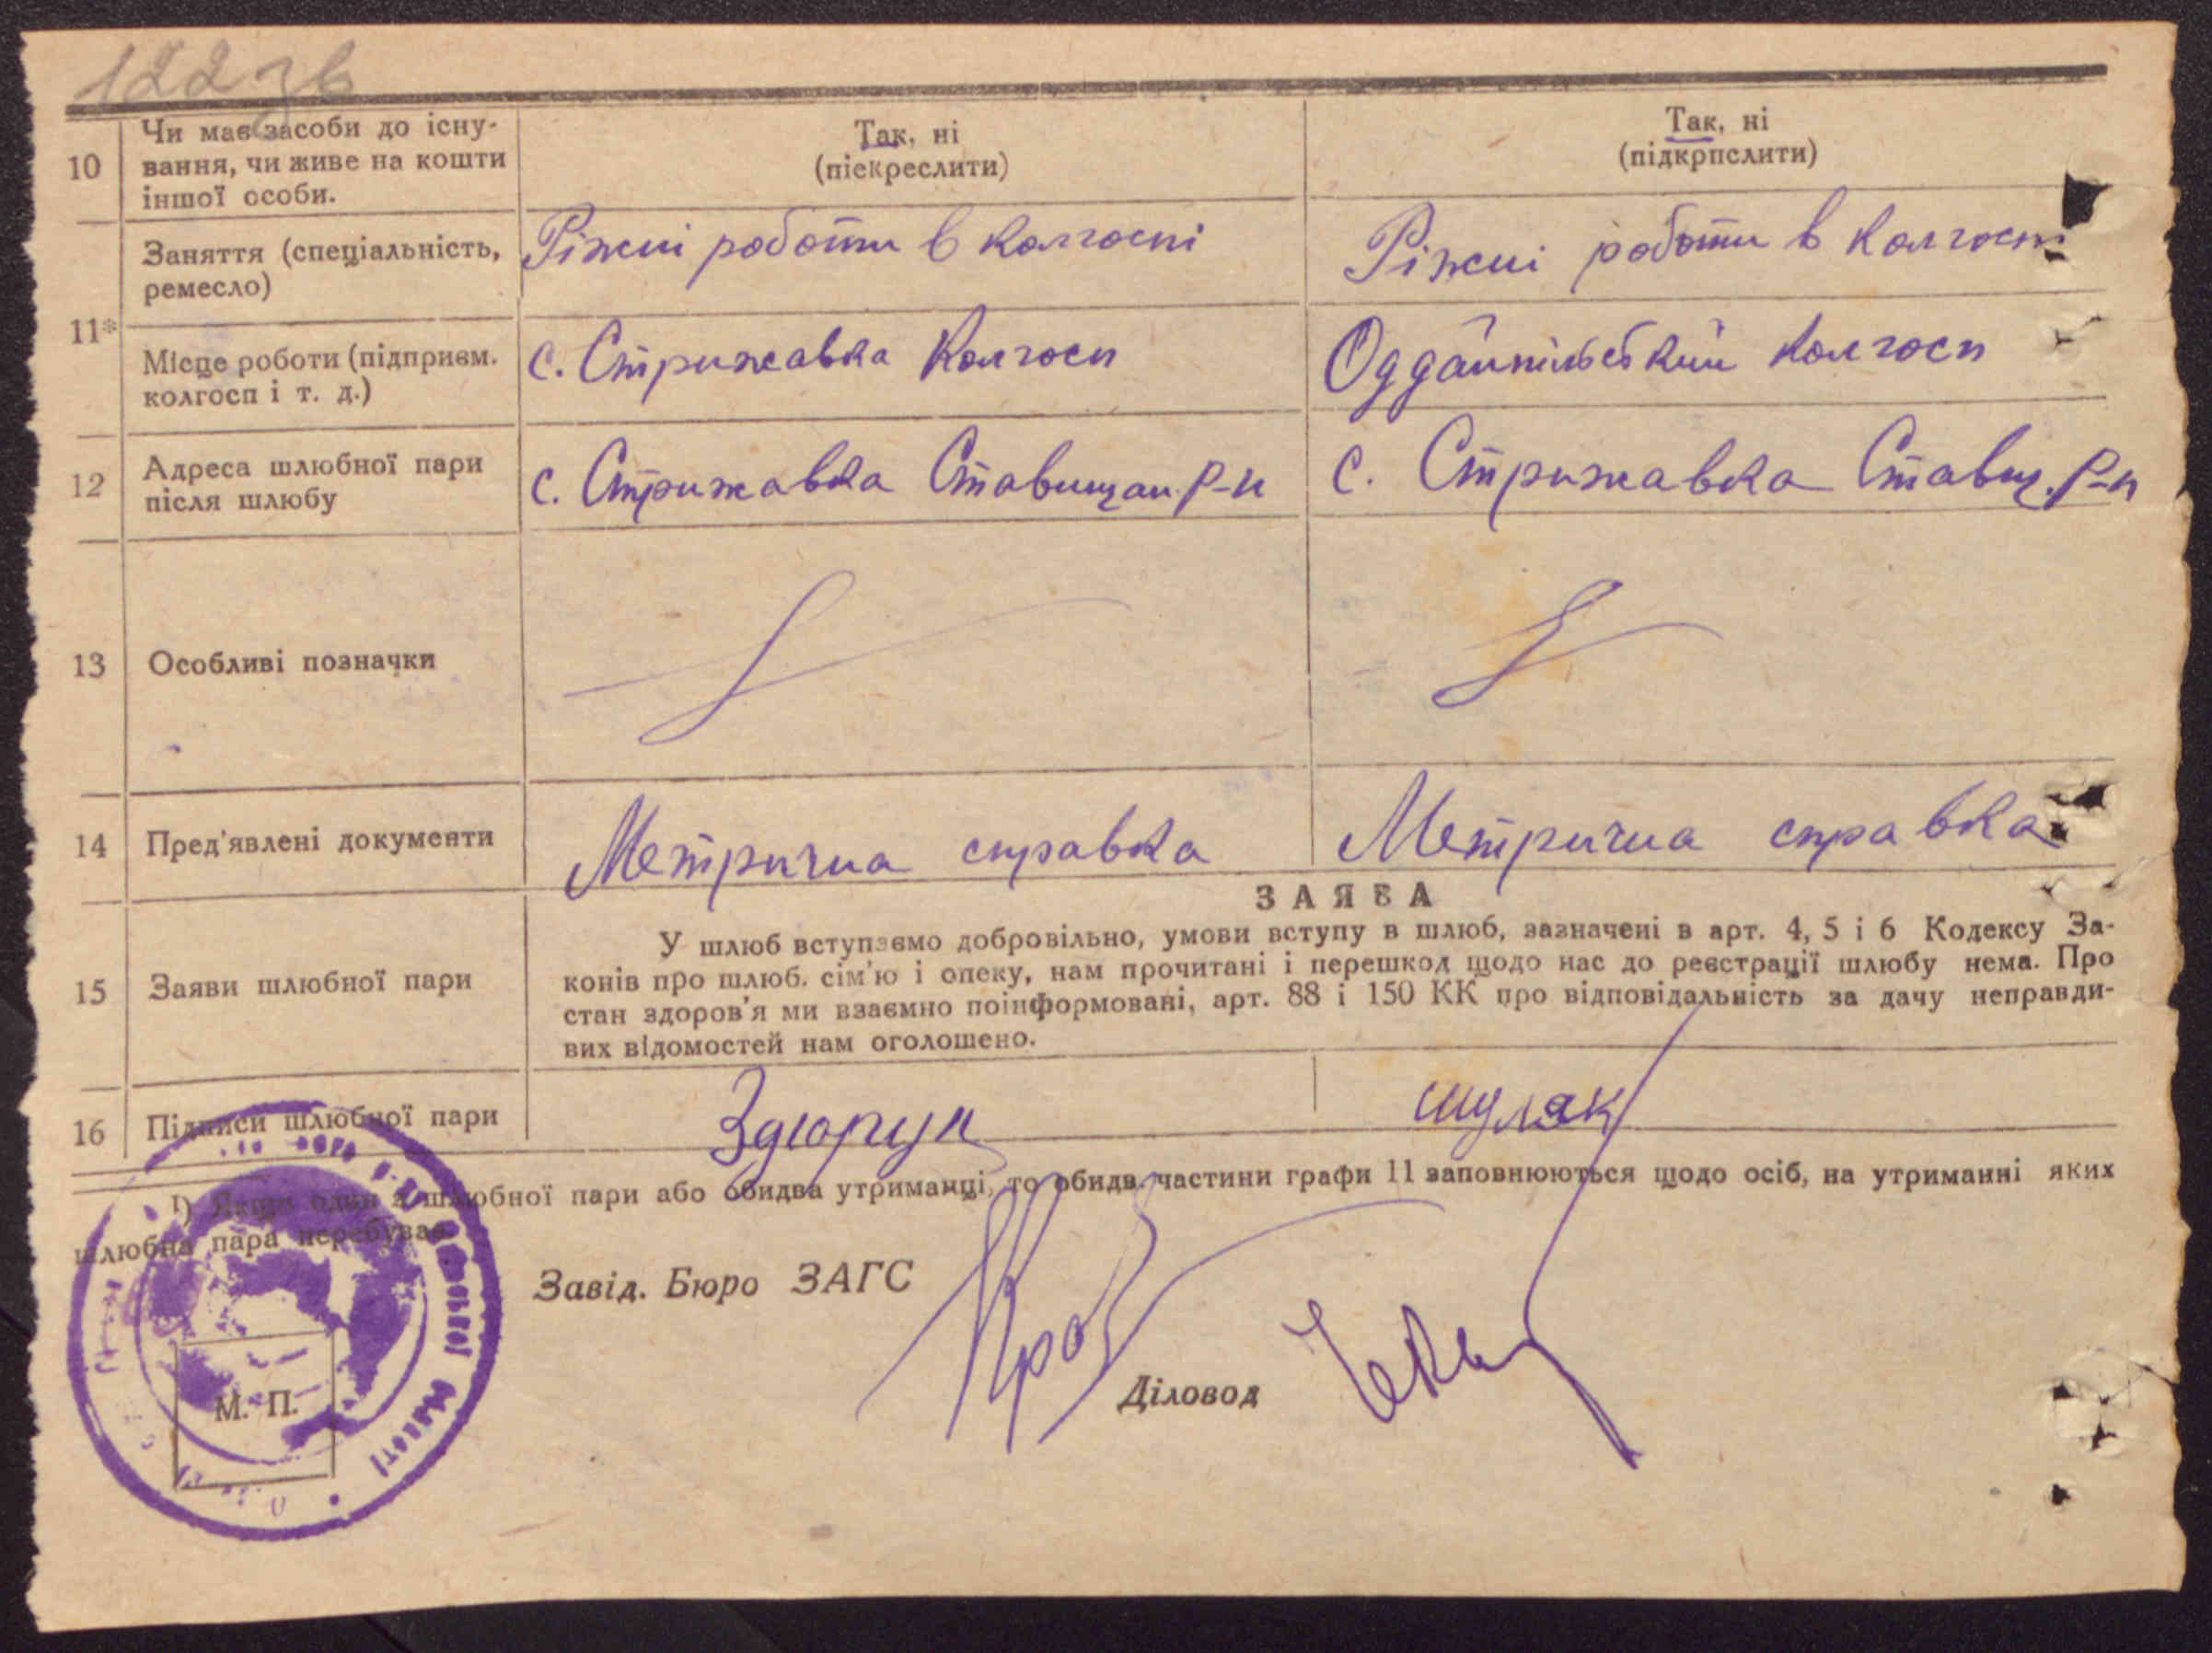 122 зв
10
Чи має засоби до існу-
вання, чи живе на кошти
іншої особи.
Так, ні
(піекреслити)
Так, ні
(підкрпслити)
11*
Заняття (спеціальність,
ремесло)
Ріжні роботи в колгоспі
Ріжні роботи в колгоспі
Місце роботи (підприєм.
колгосп і т. д.)
с. Стрижавка Колгосп
Оддайпільський колгосп
12
Адреса шлюбної пари
після шлюбу
с. Стрижавка Ставищан. р-н
с. Стрижавка Ставищ. р-н
13
Особливі позначки
14
Пред'явлені документи
Метрична справка
Метрична справка
15
Заяви шлюбної пари
ЗАЯВА
У шлюб вступаємо добровільно, умови вступу в шлюб, зазначені в арт. 4, 5 і 6 Кодексу За-
конів про шлюб. сім'ю і опеку, нам прочитані і перешкод щодо нас до реєстрації шлюбу нема. Про
стан здоров'я ми взаємно поінформовані, арт. 88 і 150 КК про відповідальність за дачу неправди-
вих відомостей нам оголошено.
16
Підписи шлюбної пари
Здюрун
шуляк
¹) Якщо один з шлюбної пари або обидва утриманці, то обидв. частини графи 11 заповнюються щодо осіб, на утриманні яких
шлюбна пара перебуває
Завід. Бюро ЗАГС
Діловод
М. П.